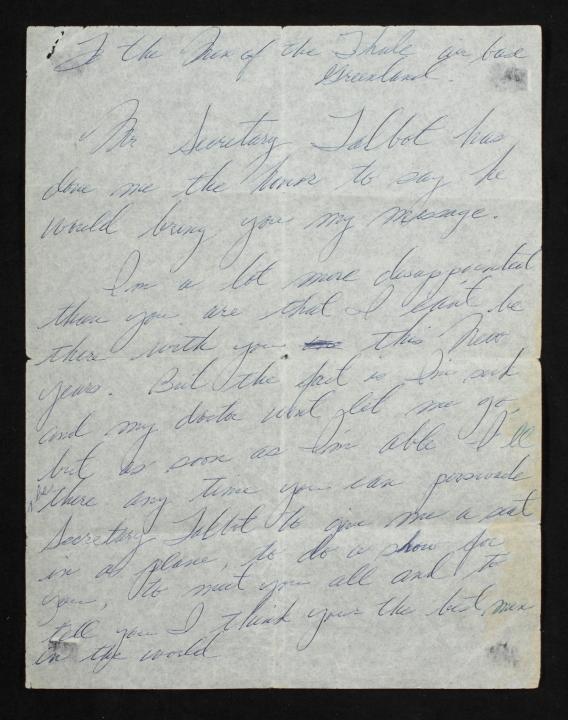 To the Men of the Thule air base
Greenland.
Mr Secretary Talbot has
done me the honor to say he
would bring you my message.
I'm a lot more disappointed
than you are that I can't be
there with you this New
years. But the fact is I'm sick
and my doctor wont let me go,
but as soon as I'm able I'll
be there any time you can perswade
Secretary Talbot to give me a seat
in a plane, to do a show for
you, to meet you all and to
tell you I think your the best men
in the world